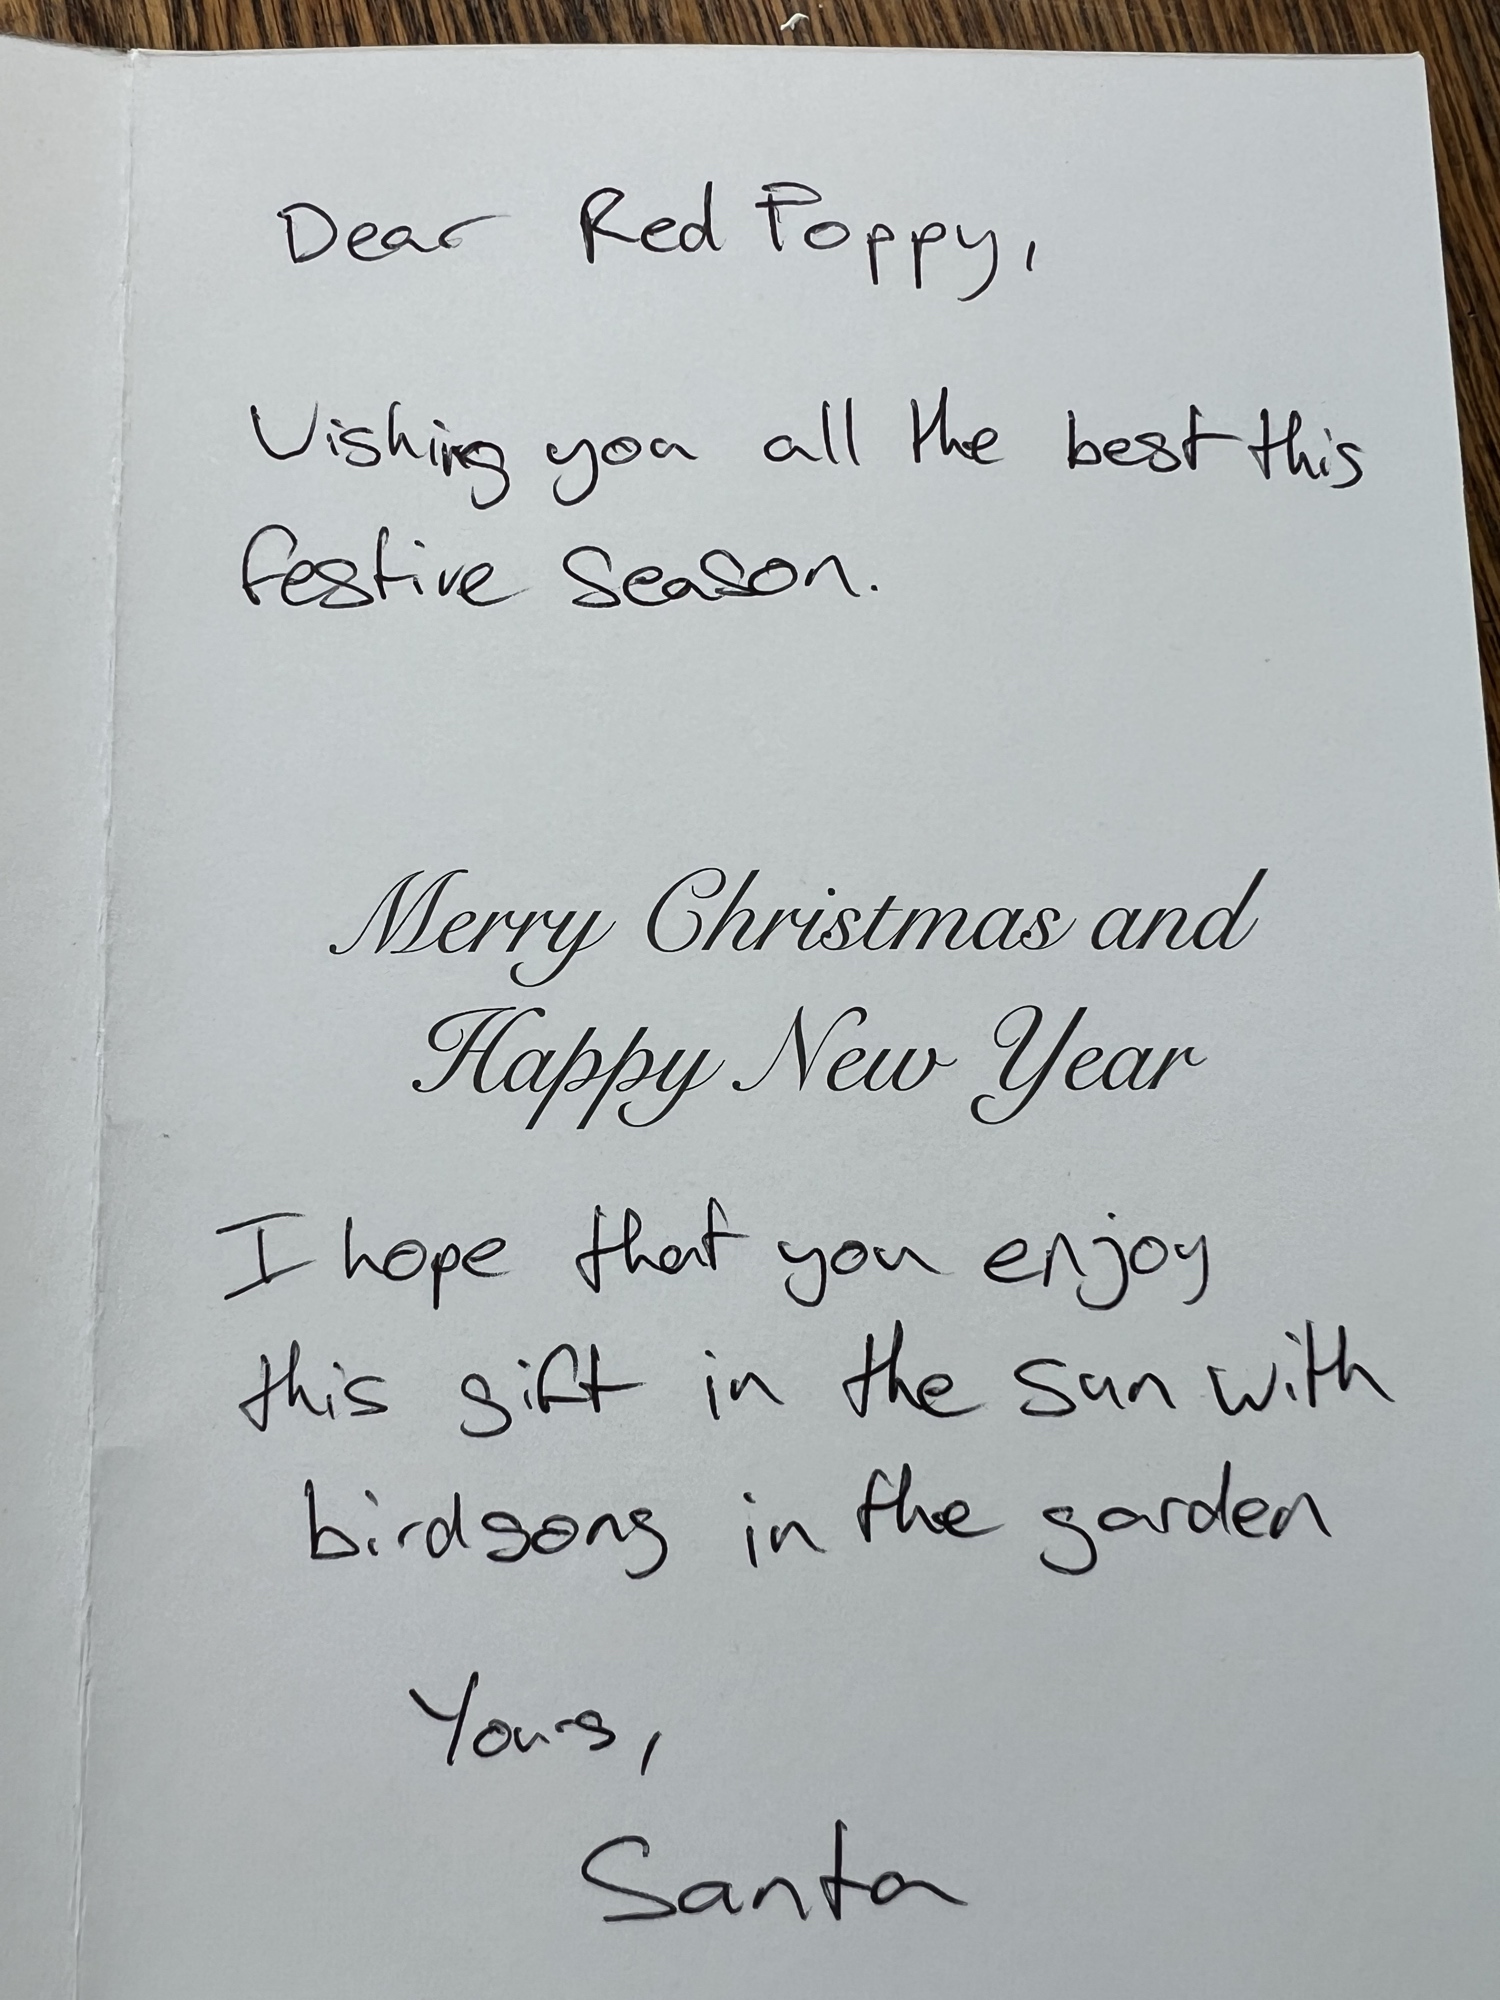 Dear Red Poppy,
Wishing you all the best this
festive season.
Merry Christmas and
Happy New Year
I hope that you enjoy
this gift in the sun with
birdsong in the garden
Yours,
Santa